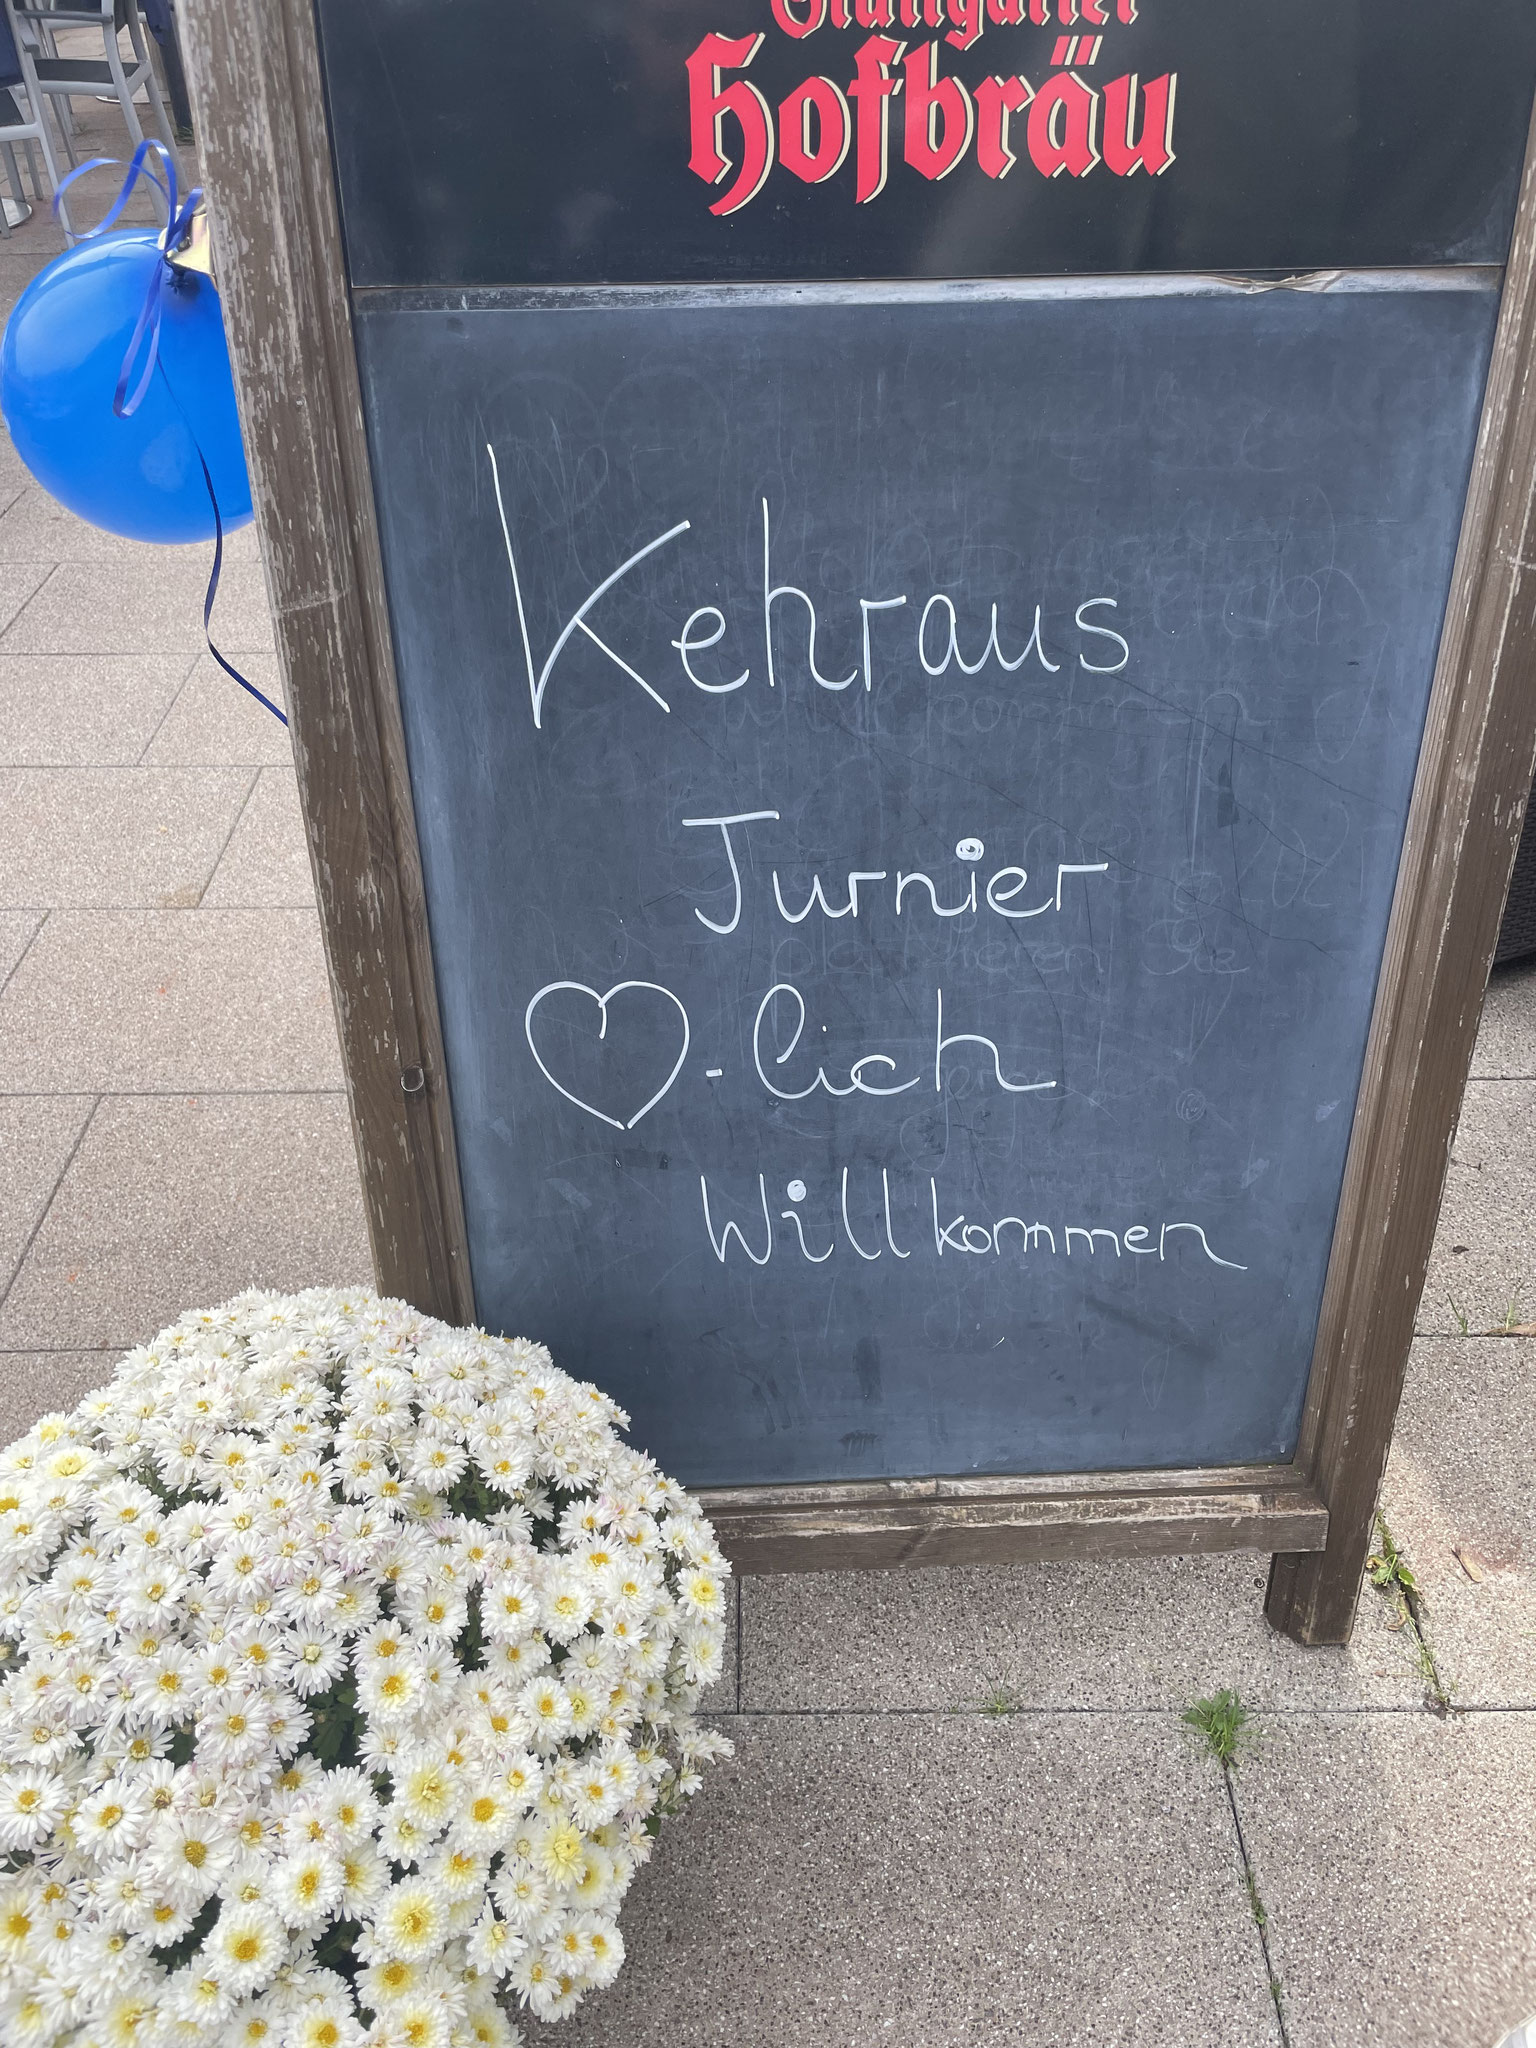 Stuttgarter
Hofbräu
Kehraus
Turnier
♡-lich
Willkommen